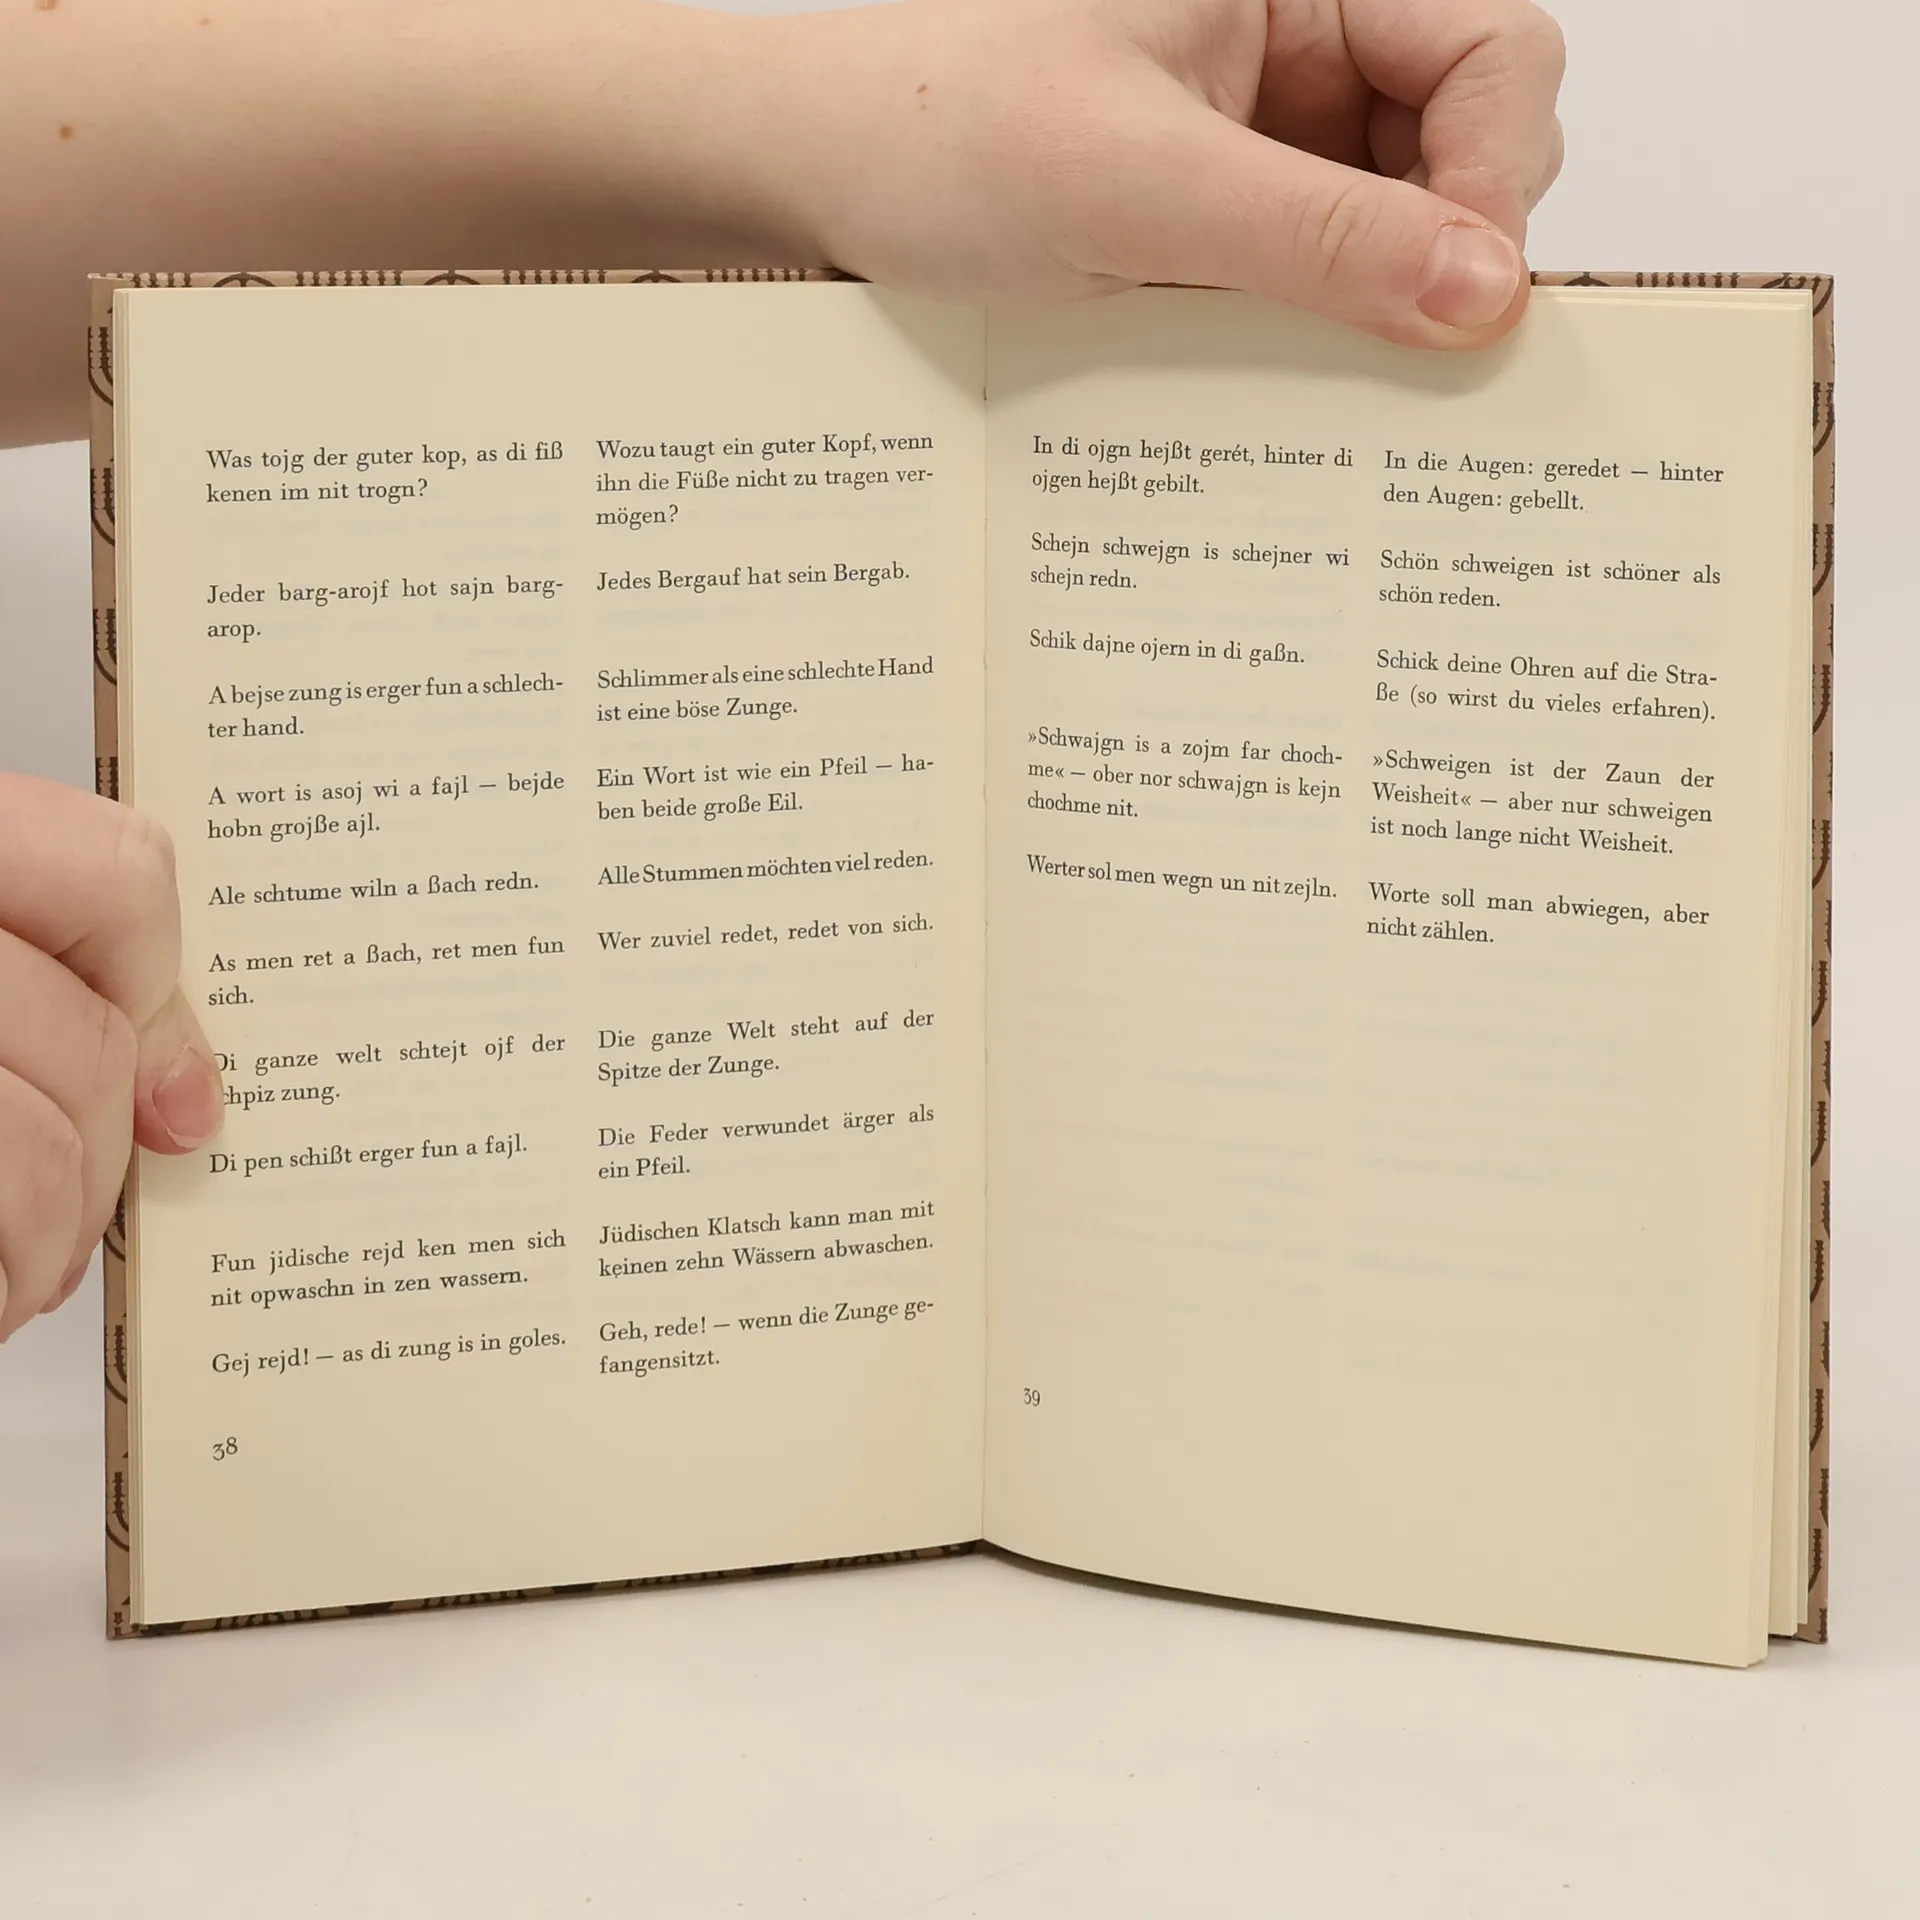 Was tojg der guter kop, as di fiß
kenen im nit trogn?
Jeder barg-arojf hot sajn barg-
arop.
A bejse zung is erger fun a schlech-
ter hand.
A wort is asoj wi a fajl — bejde
hobn grojße ajl.
Ale schtume wiln a ßach redn.
As men ret a ßach, ret men fun
sich.
Di ganze welt schtejt ojf der
zung.
Di pen schißt erger fun a fajl.
Fun jidische rejd ken men sich
nit opwaschn in zen wassern.
Gej rejd! — as di zung is in goles.
38
Wozu taugt ein guter Kopf, wenn
ihn die Füße nicht zu tragen ver-
mögen?
Jedes Bergauf hat sein Bergab.
Schlimmer als eine schlechte Hand
ist eine böse Zunge.
Ein Wort ist wie ein Pfeil — ha-
ben beide große Eil.
Alle Stummen möchten viel reden.
Wer zuviel redet, redet von sich.
Die ganze Welt steht auf der
Spitze der Zunge.
Die Feder verwundet ärger als
ein Pfeil.
Jüdischen Klatsch kann man mit
keinen zehn Wässern abwaschen.
Geh, rede! — wenn die Zunge ge-
fangensitzt.
In di ojgn hejßt gerét, hinter di
ojgen hejßt gebilt.
Schejn schwejgn is schejner wi
schejn redn.
Schik dajne ojern in di gaßn.
»Schwajgn is a zojm far choch-
me« — ober nor schwajgn is kejn
chochme nit.
Werter sol men wegn un nit zejln.
39
In die Augen: geredet — hinter
den Augen: gebellt.
Schön schweigen ist schöner als
schön reden.
Schick deine Ohren auf die Stra-
ße (so wirst du vieles erfahren).
»Schweigen ist der Zaun der
Weisheit« — aber nur schweigen
ist noch lange nicht Weisheit.
Worte soll man abwiegen, aber
nicht zählen.